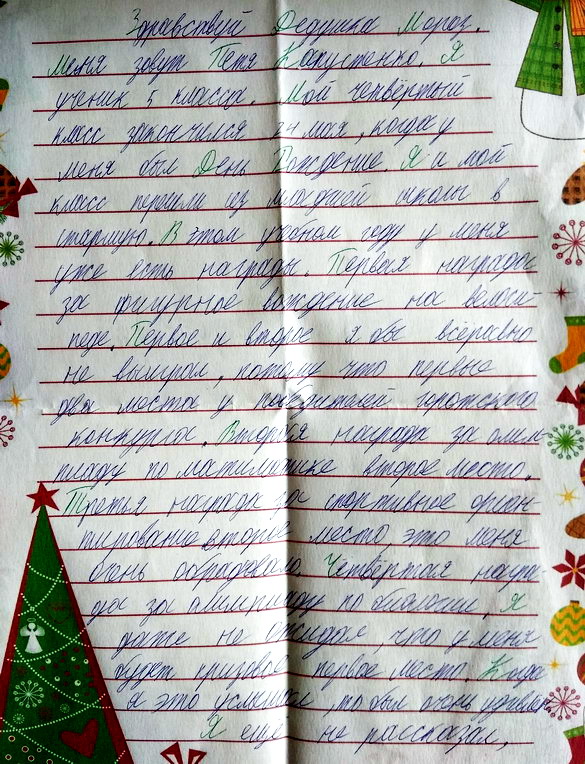 Здравствуй Дедушка Мороз.
Меня зовут Петя Капустенко. Я
ученик 5 класса. Мой четвёртый
класс закончился 24 мая, когда у
меня был День Рождение. Я и мой
класс перешли из младшей школы в
старшую. В этом учебном году у меня
уже есть награды. Первая награда
за фигурное вождение на велоси-
педе. Первое и второе я бы всёравно
не выиграл, потому что первые
два места у победителей городского
конкурса. Вторая награда за олим-
пиаду по математике второе место.
Третья награда за спортивное ориен-
тирование второе место, это меня
очень обрадовало. Четвёртая награ-
да за олимпиаду по биологии, я
даже не ожидал, что у меня
будет призовое первое место. Когда
я это услышал, то был очень удивлён.
Я ещё не рассказал,